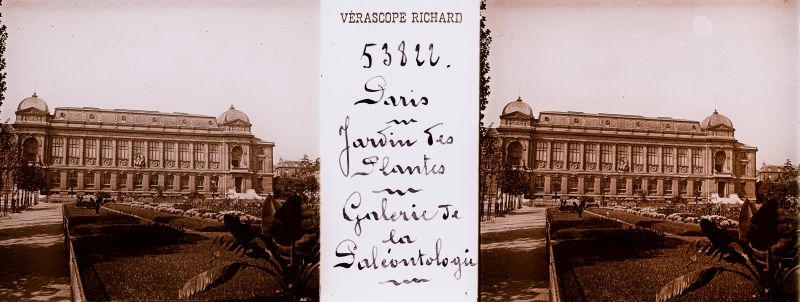 VÉRASCOPE RICHARD
53822.
Paris
Jardin des
Plantes
Galerie de
la
Paléontologie